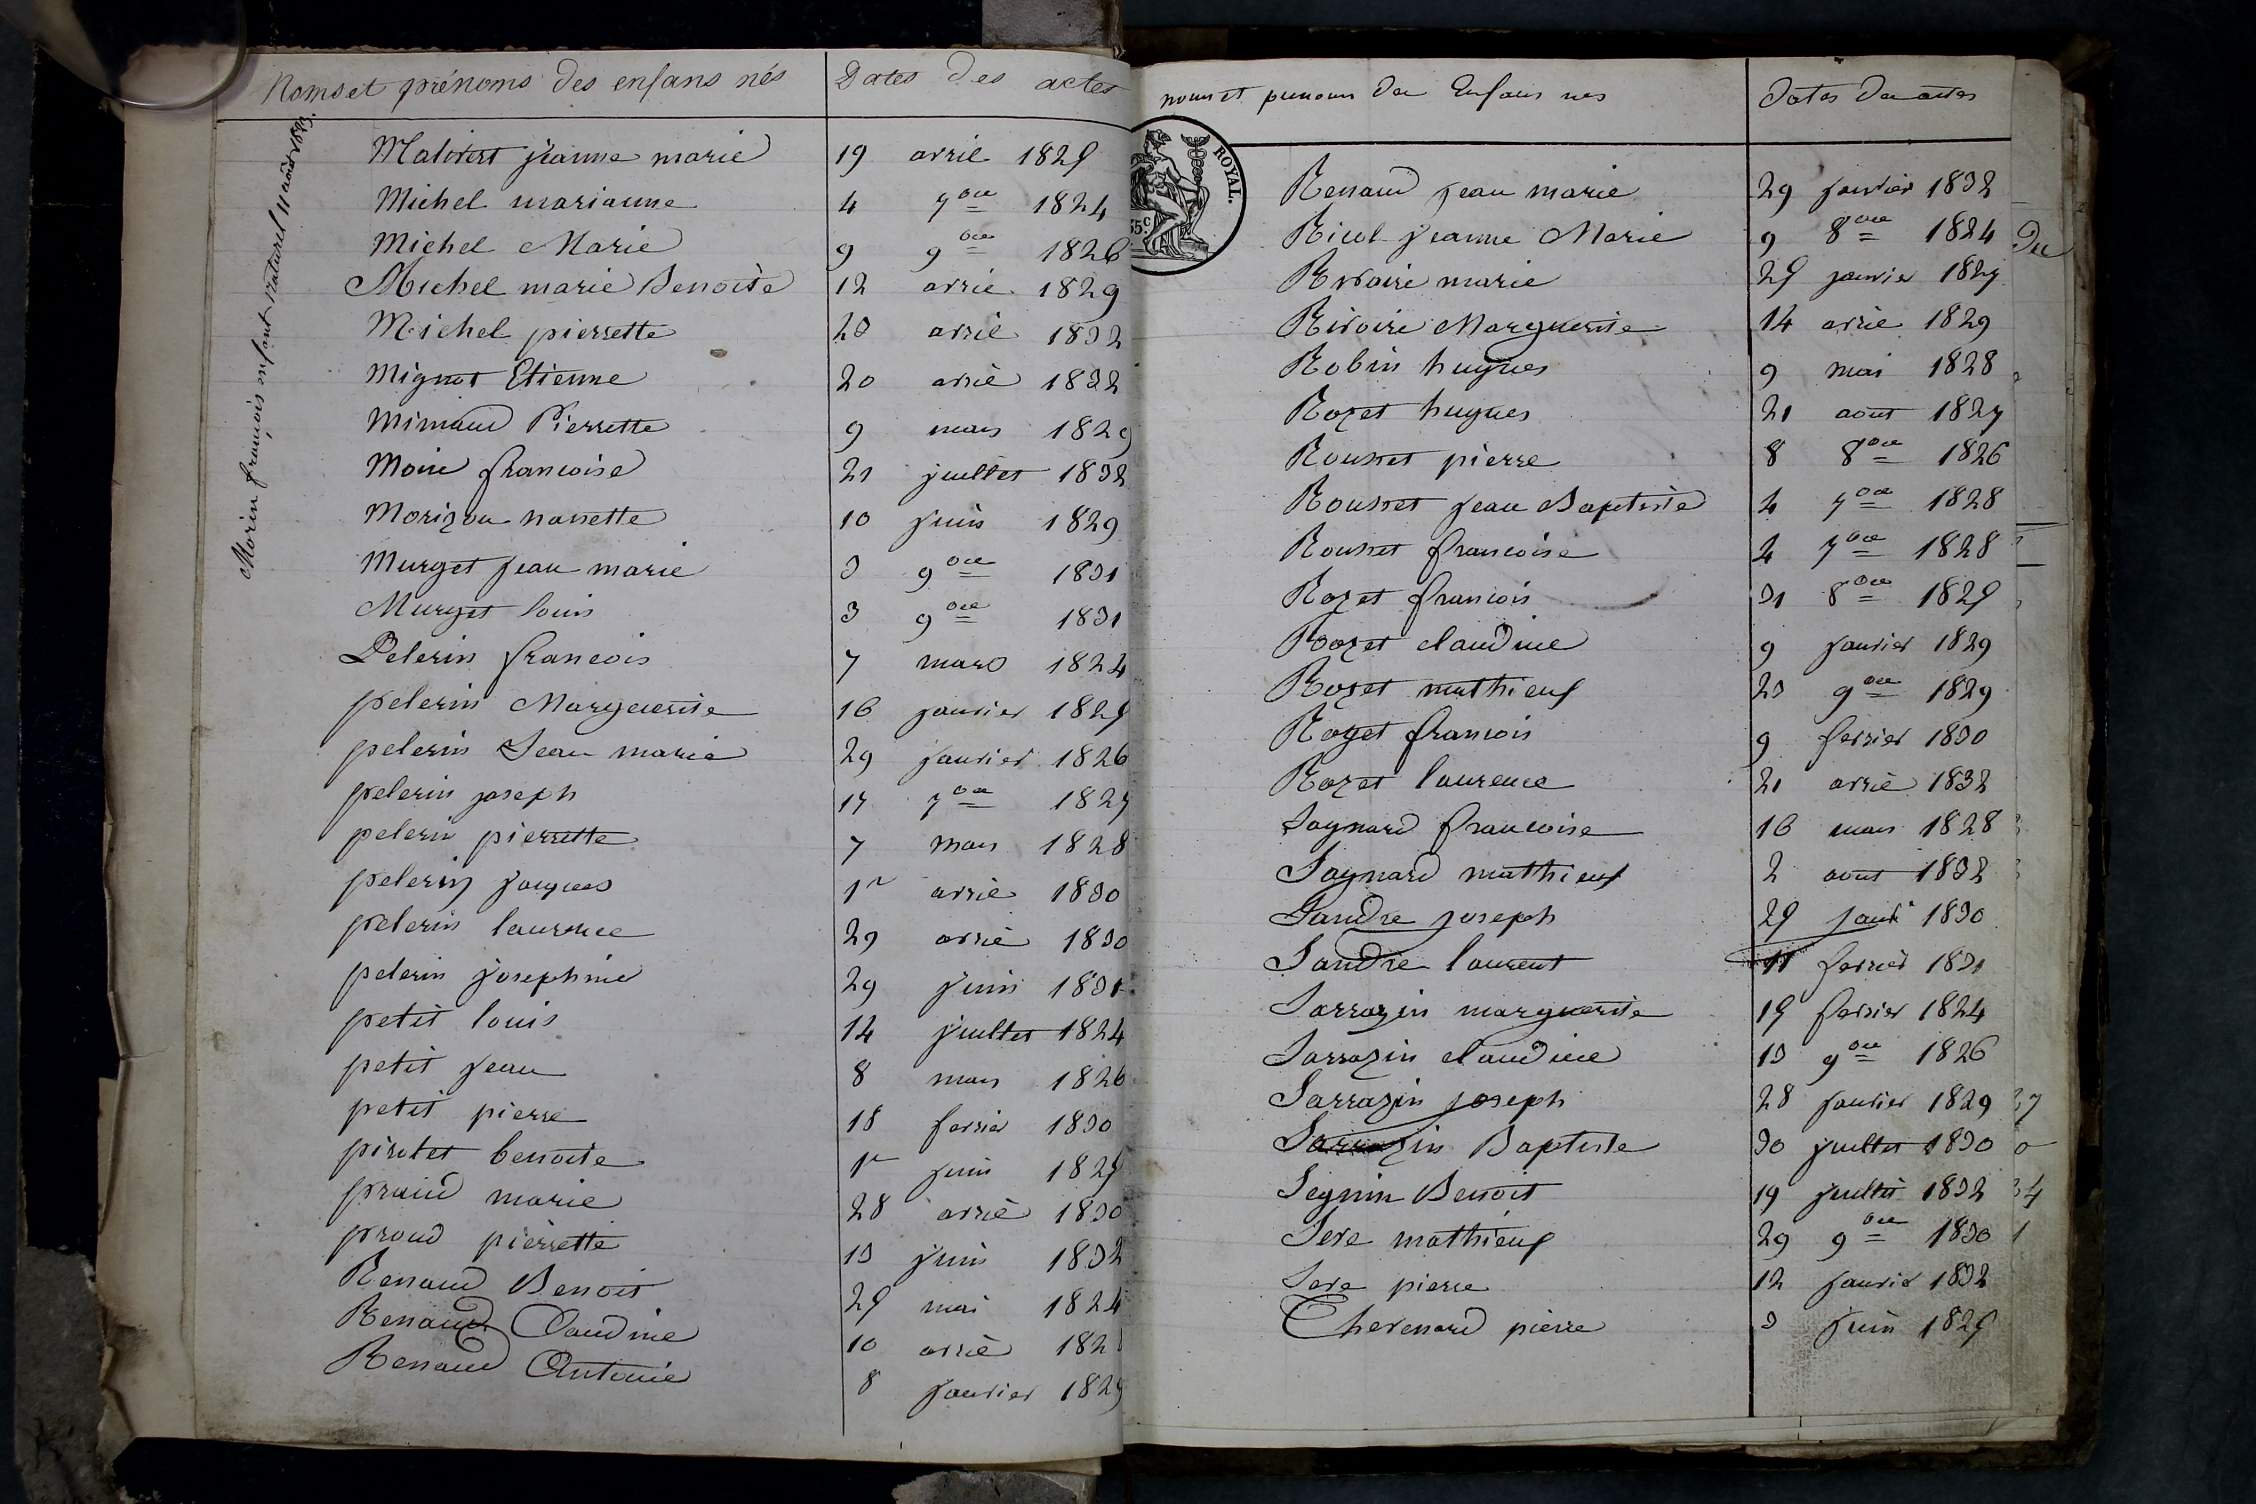 Noms et prénoms des enfans nés Dates des actes
Morin françois enfant naturel 11 août 1823.
Malivert jeanne marie 19 avril 1825
Michel marianne 4 7bre 1824
Michel Marie 9 9bre 1826
Michel marie Benoite 12 avril 1829
Michel pierrette 23 avril 1832
Mignot Etienne 20 avril 1832
Mimaud Pierrette 9 mars 1829
Moine francoise 21 juillet 1832
Morizon nanette 10 juin 1829
Murget jean marie 3 9bre 1831
Murget louis 3 9bre 1831
Pelerin francois 7 mars 1824
pelerin Marguerite 16 janvier 1825
pelerin Jean marie 29 janvier 1826
pelerin joseph 17 7bre 1827
pelerin pierrette 7 mars 1828
pelerin jacques 1r avril 1830
pelerin laurence 29 avril 1830
pelerin josephine 29 juin 1831
petit louis 14 juillet 1824
petit jean 8 mars 1826
petit pierre 18 fevrier 1830
pirotet benoite 1r juin 1825
praud marie 28 avril 1830
proud pierrette 13 juin 1832
Renaud Benoit 25 mai 1824
Renaud Claudine 10 avril 182
Renaud Antoine 8 janvier 1829
noms et prenoms des Enfans nes Dates des actes
ROYAL.
35c.
Renaud jean marie 29 janvier 1832
Ricol jeanne Marie 9 8bre 1824
Rivoire marie 25 janvier 1827
Rivoire Marguerite 14 avril 1829
Robin hugues 9 mai 1828
Rozet hugues 21 aout 1827
Rousset pierre 8 8bre 1826
Rousset jean Baptiste 4 7bre 1828
Rousset francoise 4 7bre 1828
Rozet francois 31 8bre 1825
Rozet claudine 9 janvier 1829
Rozet mathieuf 23 9bre 1829
Rozet francois 9 fevrier 1830
Rozet laurence 21 avril 1832
Saynard francoise 16 mars 1828
Saynard mathieuf 2 aout 1832
Sandre joseph 25 janv 1830
Sandre laurent 11 fevrier 1831
Sarrazin marguerite 15 fevrier 1824
Sarrazin claudine 13 9bre 1826
Sarrazin joseph 28 janvier 1829
Sarrazin Baptiste 30 juillet 1830
Seguin Benoit 19 juillet 1832
Sere mathieuf 29 9bre 1830
Sere pierre 12 janvier 1832
Thevenard pierre 3 juin 1825